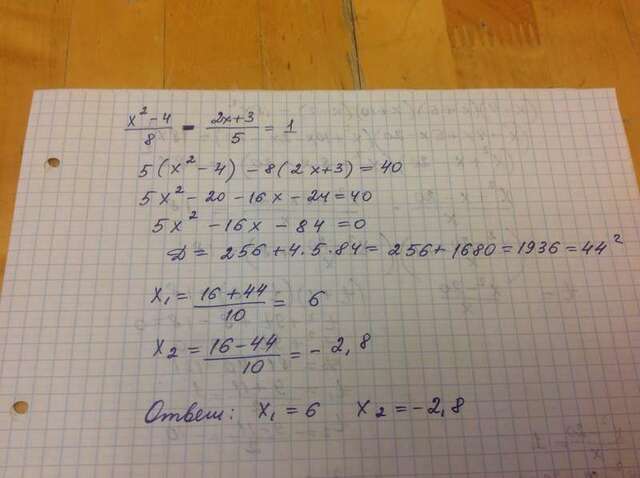 (x² - 4)/8 - (2x+3)/5 = 1
5(x² - 4) - 8(2x+3) = 40
5x² - 20 - 16x - 24 = 40
5x² - 16x - 84 = 0
D = 256 + 4·5·84 = 256 + 1680 = 1936 = 44²
x₁ = (16+44)/10 = 6
x₂ = (16-44)/10 = -2,8
Ответ: x₁ = 6 x₂ = -2,8